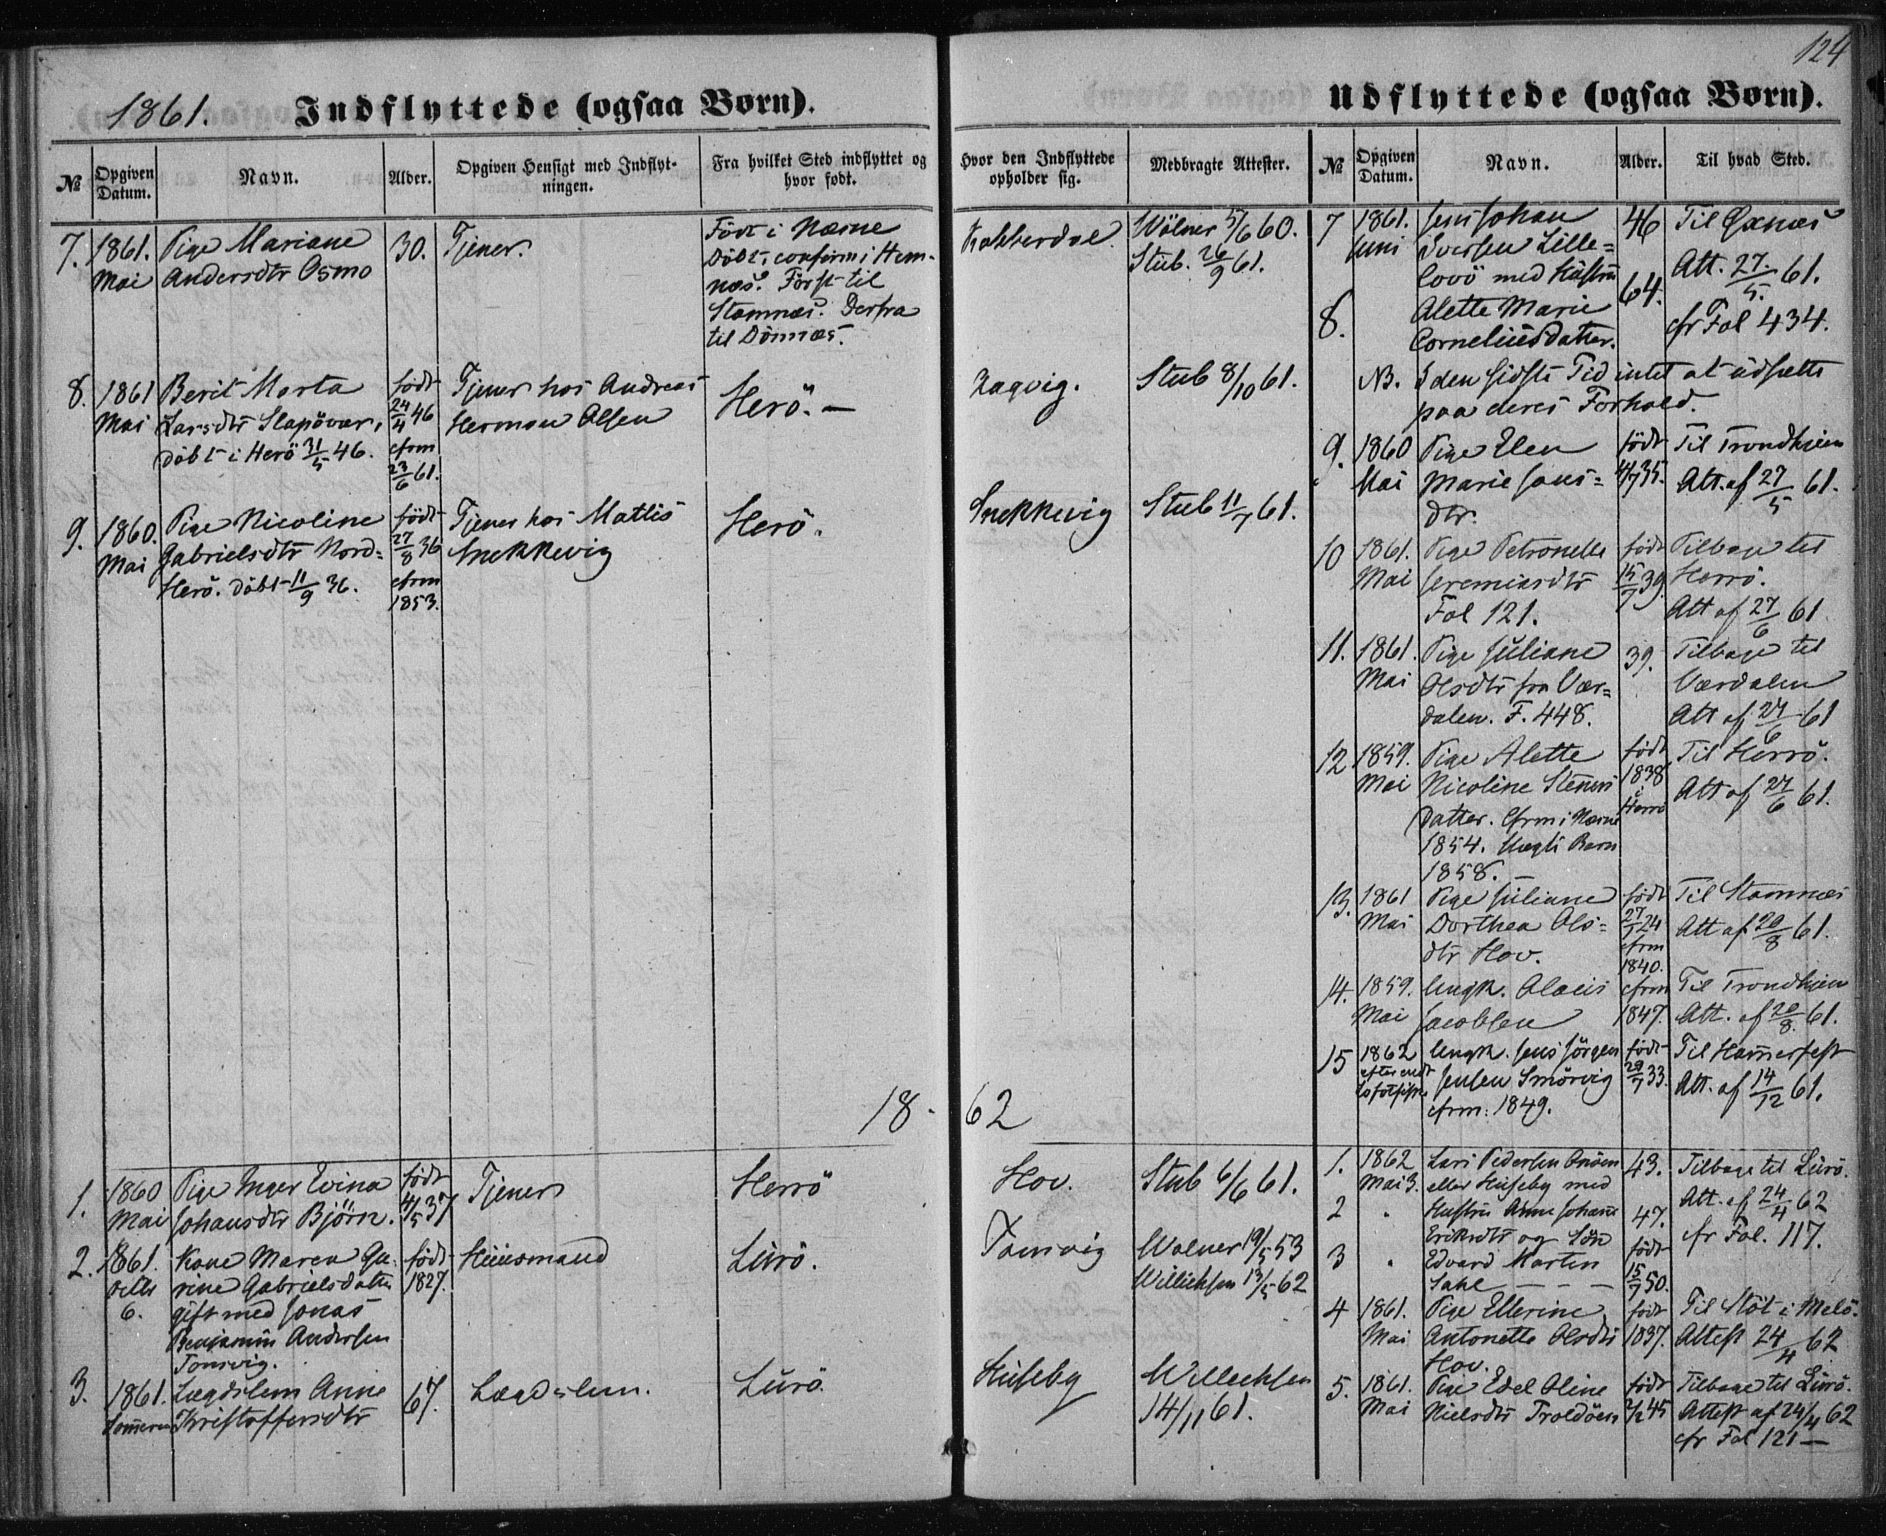 124
1861. Indflyttede (ogsaa Børn).
№
Opgiven Datum.
Navn.
Alder.
Opgiven Hensigt med Indflyt-
ningen.
Fra hvilket Sted indflyttet og
hvor født.
Hvor den Indflyttede
opholder sig.
Medbragte Attester.
7. 1861. Mai
Pige Mariane
Andersdtr Osmo
30.
Tjener.
Födt i Næsne
Döbt, confirm i Hem-
næs. Först til
Stamnæs. Derfra
til Dönnæs.
Kobberdal.
Wölner 5/6 60.
Stub. 26/9 61.
8. 1861 Mai
Berit Marta
Larsdtr Slapövær,
döbt i Herö 31/5 46.
födt
24/4 46
cfrm
23/6 61.
Tjener hos Andreas
Herman Olsen
Herö. —
Zagvig.
Stub 8/10 61.
9. 1860. Mai
Pige Nicoline
Gabrielsdtr Nord-
Herö. döbt 11/9 36.
födt
27/8 36
cfrm
1853.
Tjener hos Mattis
Snekkevig
Herö.
Snekkevig
Stub 11/7 61.
18-62
1. 1860 Mai
Pige Inger Evina
Johansdtr Björn.
födt
4/5 37
Tjener
Herrö
Hov.
Stub 6/6 61.
2. 1861.
6.
Kone Maren Gu-
rine Gabrielsdatter
gift med Jonas
Benjamin Andersen
Tomvig.
födt
1827.
Huusmand
Lurö.
Tomvig
Wolner 19/5 53
Willichsen 13/5 62
3. 1861. Someren
Lægdslem Anne
Kristoffersdtr
67.
Lægdslem.
Lurö.
Huseby
Willichsen
14/11 61.
Udflyttede (ogsaa Børn).
№
Opgiven Datum.
Navn.
Alder.
Til hvad Sted.
7 1861. Juni
Jens Johan
Iversen Lille-
Lovö med Hustru
46
Til Øxnæs
Att. 27/5. 61.
8.
Alette Marie
Corneliusdatter.
64.
cfr Fol 434.
NB. I den sidste Tid intet at udsætte
paa deres Forhold.
9. 1860 Mai
Pige Elen
Marie Jons-
dtr.
födt
4/7 35.
Til Trondhjem
Att. af 27/5 61.
10 1861. Mai
Pige Petronelle
Jeremiasdtr
Fol 121.
födt
15/7 39.
Tilbage til
Herrö.
Att af 27/6 61
11. 1861. Mai
Pige Juliane
Olsdtr fra Vær-
dalen. F. 448.
39.
Tilbage til
Værdalen
Att af 27/6 61
12 1859. Mai
Pige Alette
Nicoline Stens
datter. Cfrm i Næsne
1854. Uægte Barn
1858.
födt
1838
i
Herrö
Til Herrö.
Att af 27/6 61.
13. 1861 Mai
Pige Juliane
Dorthea Ols-
dtr Hov.
födt
27/1 24
cfrm
1840.
Til Stamnæs
Att af 20/8 61.
14. 1859. Mai
Ungk. Olaus
Jacobsen
cfrm
1847.
Til Trondhjem
Att. af 20/8. 61.
15 1862
efter endt
Ungk. Jens Jörgen
Jensen Smörvig
cfrm: 1849.
födt
29/7 33.
Til Hamerfest
Att. af 14/12 61.
1. 1862 Mai 3.
Lars Pedersen
eller Huseby med
43.
Tilbage til Lurö.
Att. af 24/4 62
cfr Fol. 117.
2 "
Hustru Anne Johane
Eriksdtr og Sön
47.
3 "
Edvard Martin
födt
15/7 50.
4 1861. Mai
Pige Ellerine
Antonette Olsdtr
Hov.
födt
1837.
Til Stöt i Melö.
Attest 24/4 62
5. 1861. Mai
Pige Edel Oline
Nielsdtr Troldöen
födt
2/2 45
Tilbage til Lurö.
Attest af 24/4 62
cfr Fol 121 —